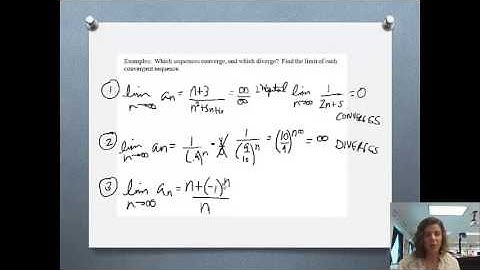 Examples: Which sequences converge, and which diverge? Find the limit of each
convergent sequence.
① lim n→∞ aₙ = n+3 / n²+5n+6 = ∞/∞ L'Hopital lim n→∞ 1/2n+5 = 0
CONVERGES
② lim n→∞ aₙ = 1/(.9)ⁿ = 1/(9/10)ⁿ = (10/9)ⁿ = ∞ DIVERGES
③ lim n→∞ aₙ = n+(-1)ⁿ / n